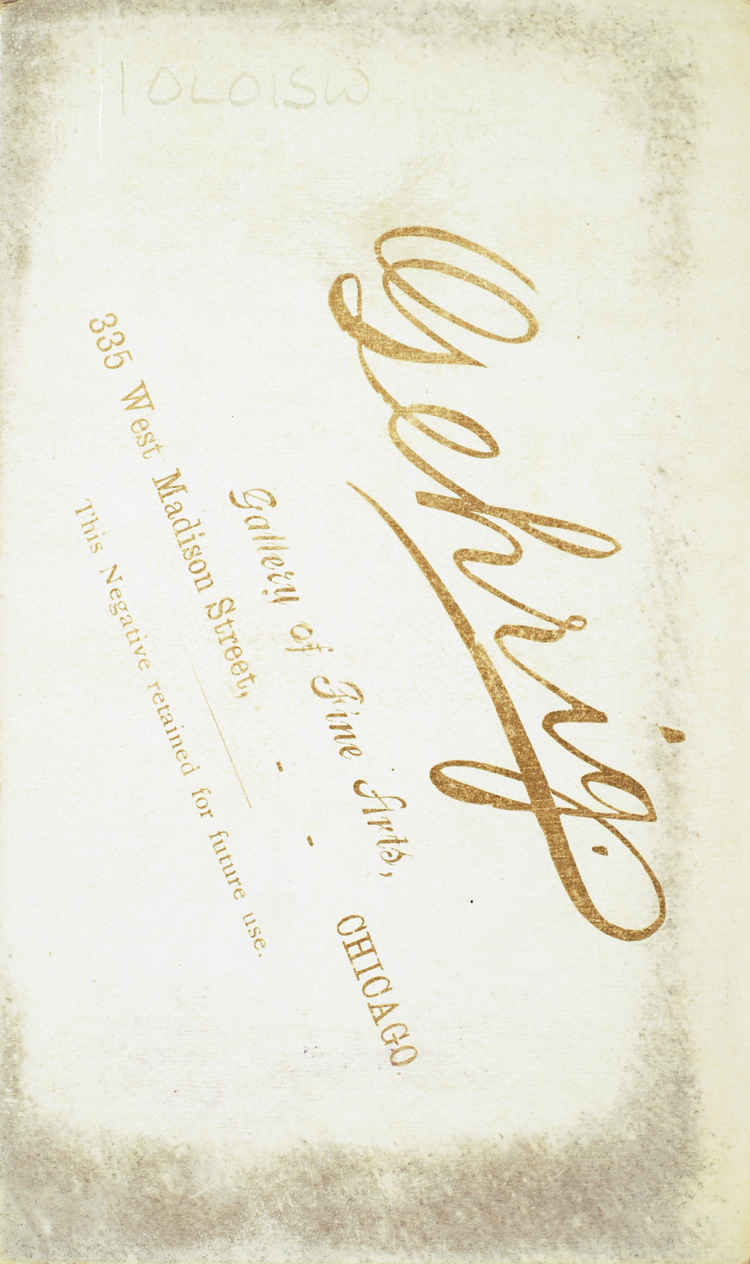 10L01SW
Gehrig.
Gallery of Fine Arts,
335 West Madison Street, - - CHICAGO.
This Negative retained for future use.